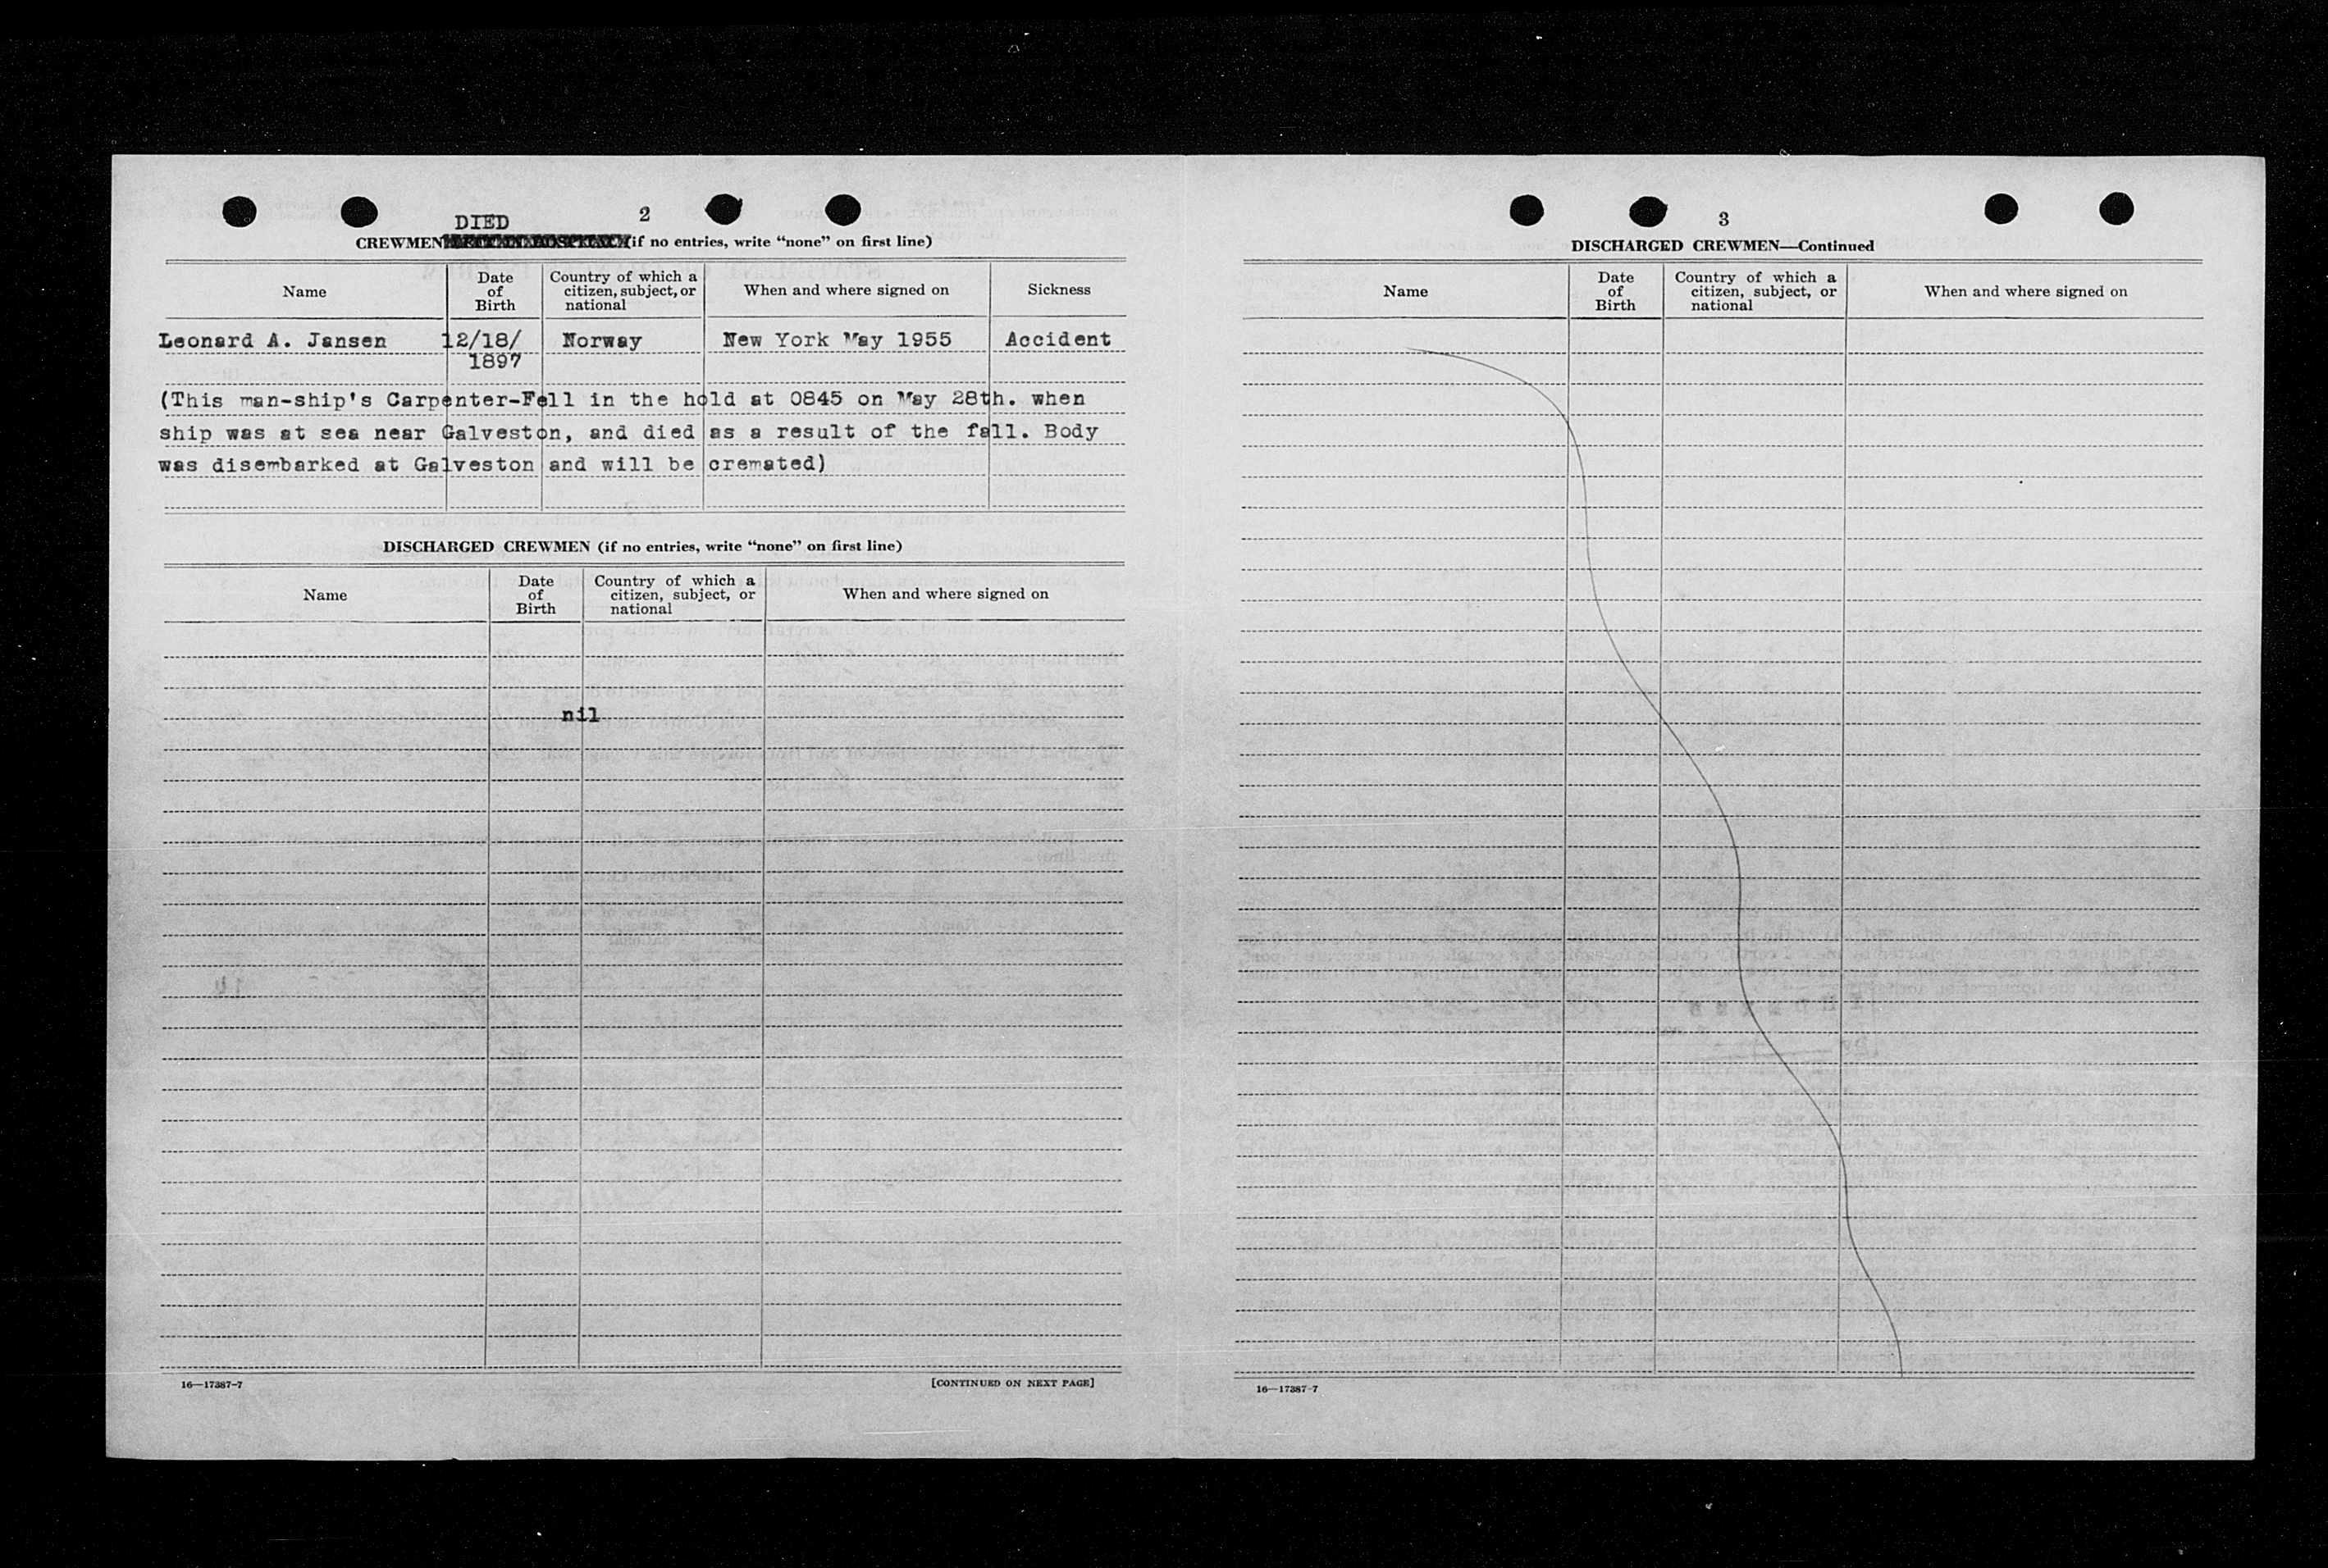 2
DIED
CREWMEN (if no entries, write “none” on first line)
Name
Date of Birth
Country of which a citizen, subject, or national
When and where signed on
Sickness
Leonard A. Jansen 12/18/ Norway New York May 1955 Accident
1897
(This man-ship's Carpenter-Fell in the hold at 0845 on May 28th. when
ship was at sea near Galveston, and died as a result of the fall. Body
was disembarked at Galveston and will be cremated)
DISCHARGED CREWMEN (if no entries, write “none” on first line)
Name
Date of Birth
Country of which a citizen, subject, or national
When and where signed on
nil
16—17387-7
[CONTINUED ON NEXT PAGE]
3
DISCHARGED CREWMEN—Continued
Name
Date of Birth
Country of which a citizen, subject, or national
When and where signed on
16—17387-7